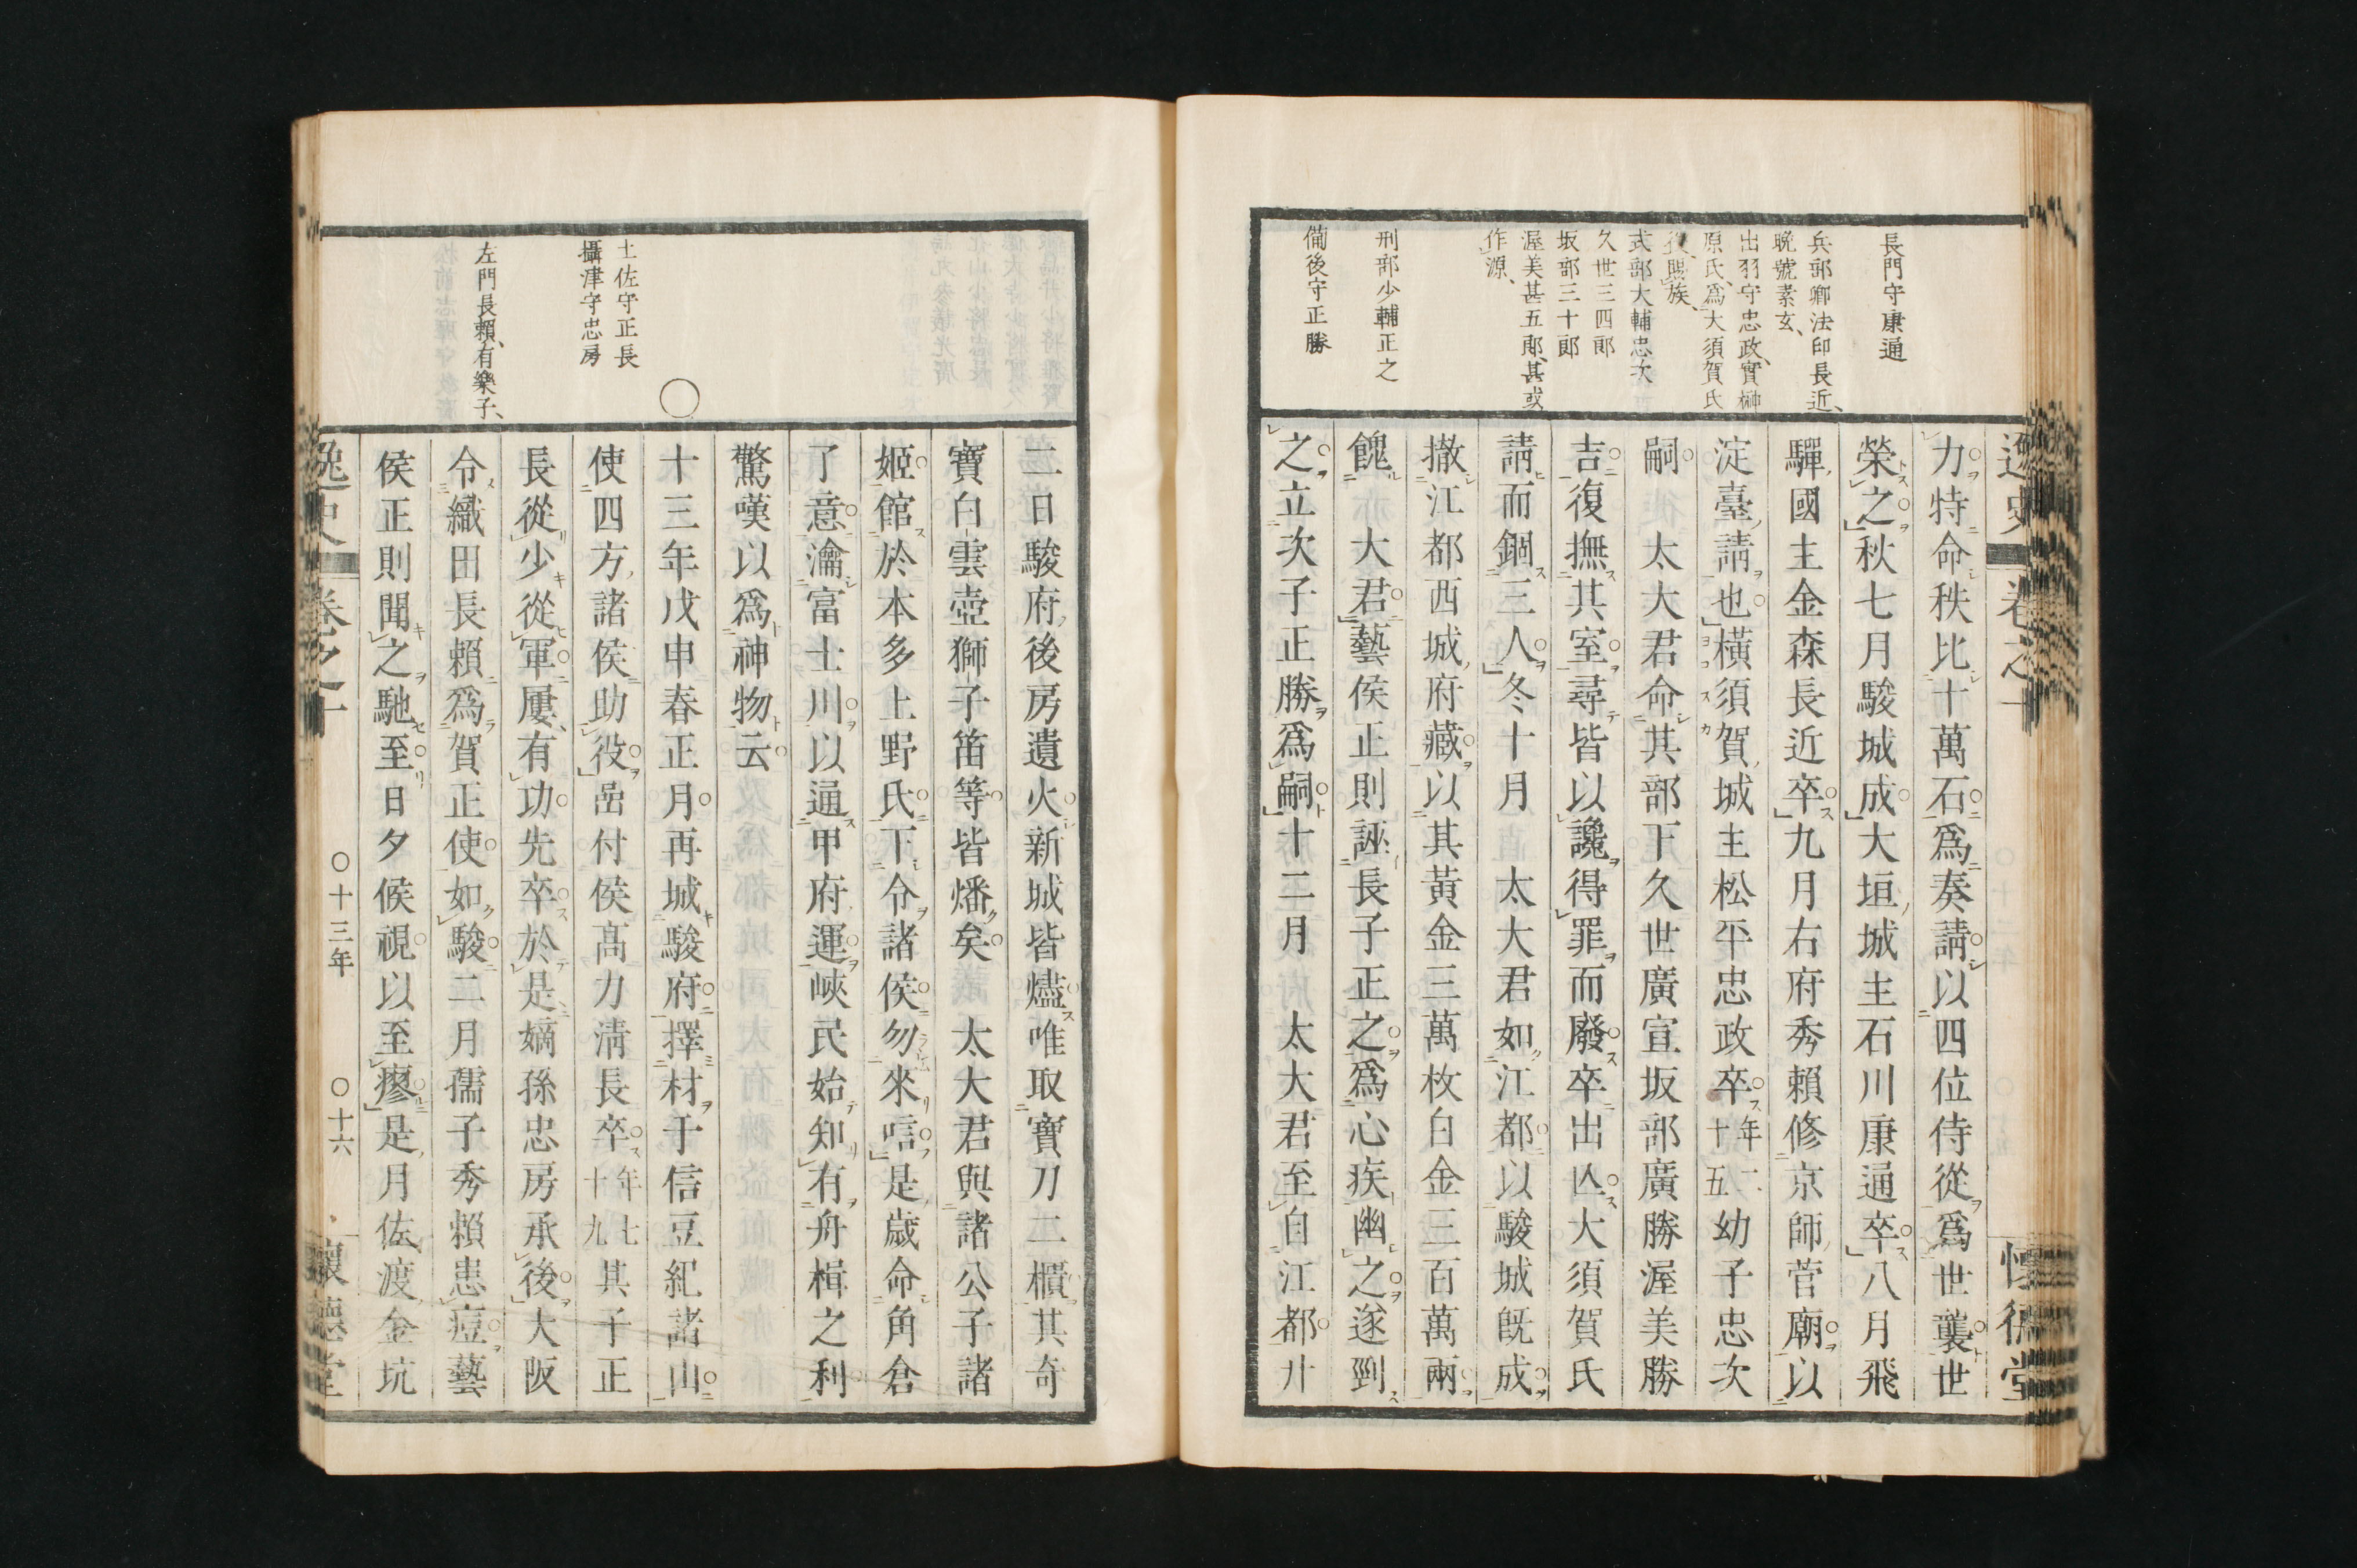 逸史 卷之十 懷德堂
長門守康通
兵部卿法印長近、
晩號素玄、
出羽守忠政、實榊
原氏、爲大須賀氏
後、賜族、
式部大輔忠次
久世三四郎
坂部三十郎
渥美甚五郎、甚或
作源、
刑部少輔正之
備後守正勝
力特命秩比十萬石爲奏請以四位侍從爲世襲世
榮之秋七月駿城成大垣城主石川康通卒八月飛
驒國主金森長近卒九月右府秀賴修京師菅廟以
淀臺請也橫須賀城主松平忠政卒年二十五幼子忠次
嗣 太大君命其部下久世廣宣坂部廣勝渥美勝
吉復撫其室尋皆以讒得罪而廢卒出亾大須賀氏
請而錮三人冬十月 太大君如江都以駿城既成
撤江都西城府藏以其黃金三萬枚白金三百萬兩
餽 大君藝侯正則誣長子正之爲心疾幽之遂剄
之立次子正勝爲嗣十二月 太大君至自江都廾
土佐守正長
攝津守忠房
左門長賴、有樂子、
二日駿府後房遺火新城皆燼唯取寶刀二櫃其奇
寶白雲壺獅子笛等皆燔矣 太大君與諸公子諸
姬館於本多上野氏下令諸侯勿來唁是歲命角倉
了意瀹富士川以通甲府運峽民始知有舟楫之利
驚嘆以爲神物云
十三年戊申春正月再城駿府擇材于信豆紀諸山
使四方諸侯助役嵒付侯高力淸長卒年七十九其子正
長從少從軍屢有功先卒於是嫡孫忠房承後大阪
令織田長賴爲賀正使如駿二月孺子秀賴患痘藝
侯正則聞之馳至日夕候視以至瘳是月佐渡金坑
逸史 卷之十 ○十三年 ○十六 懷德堂